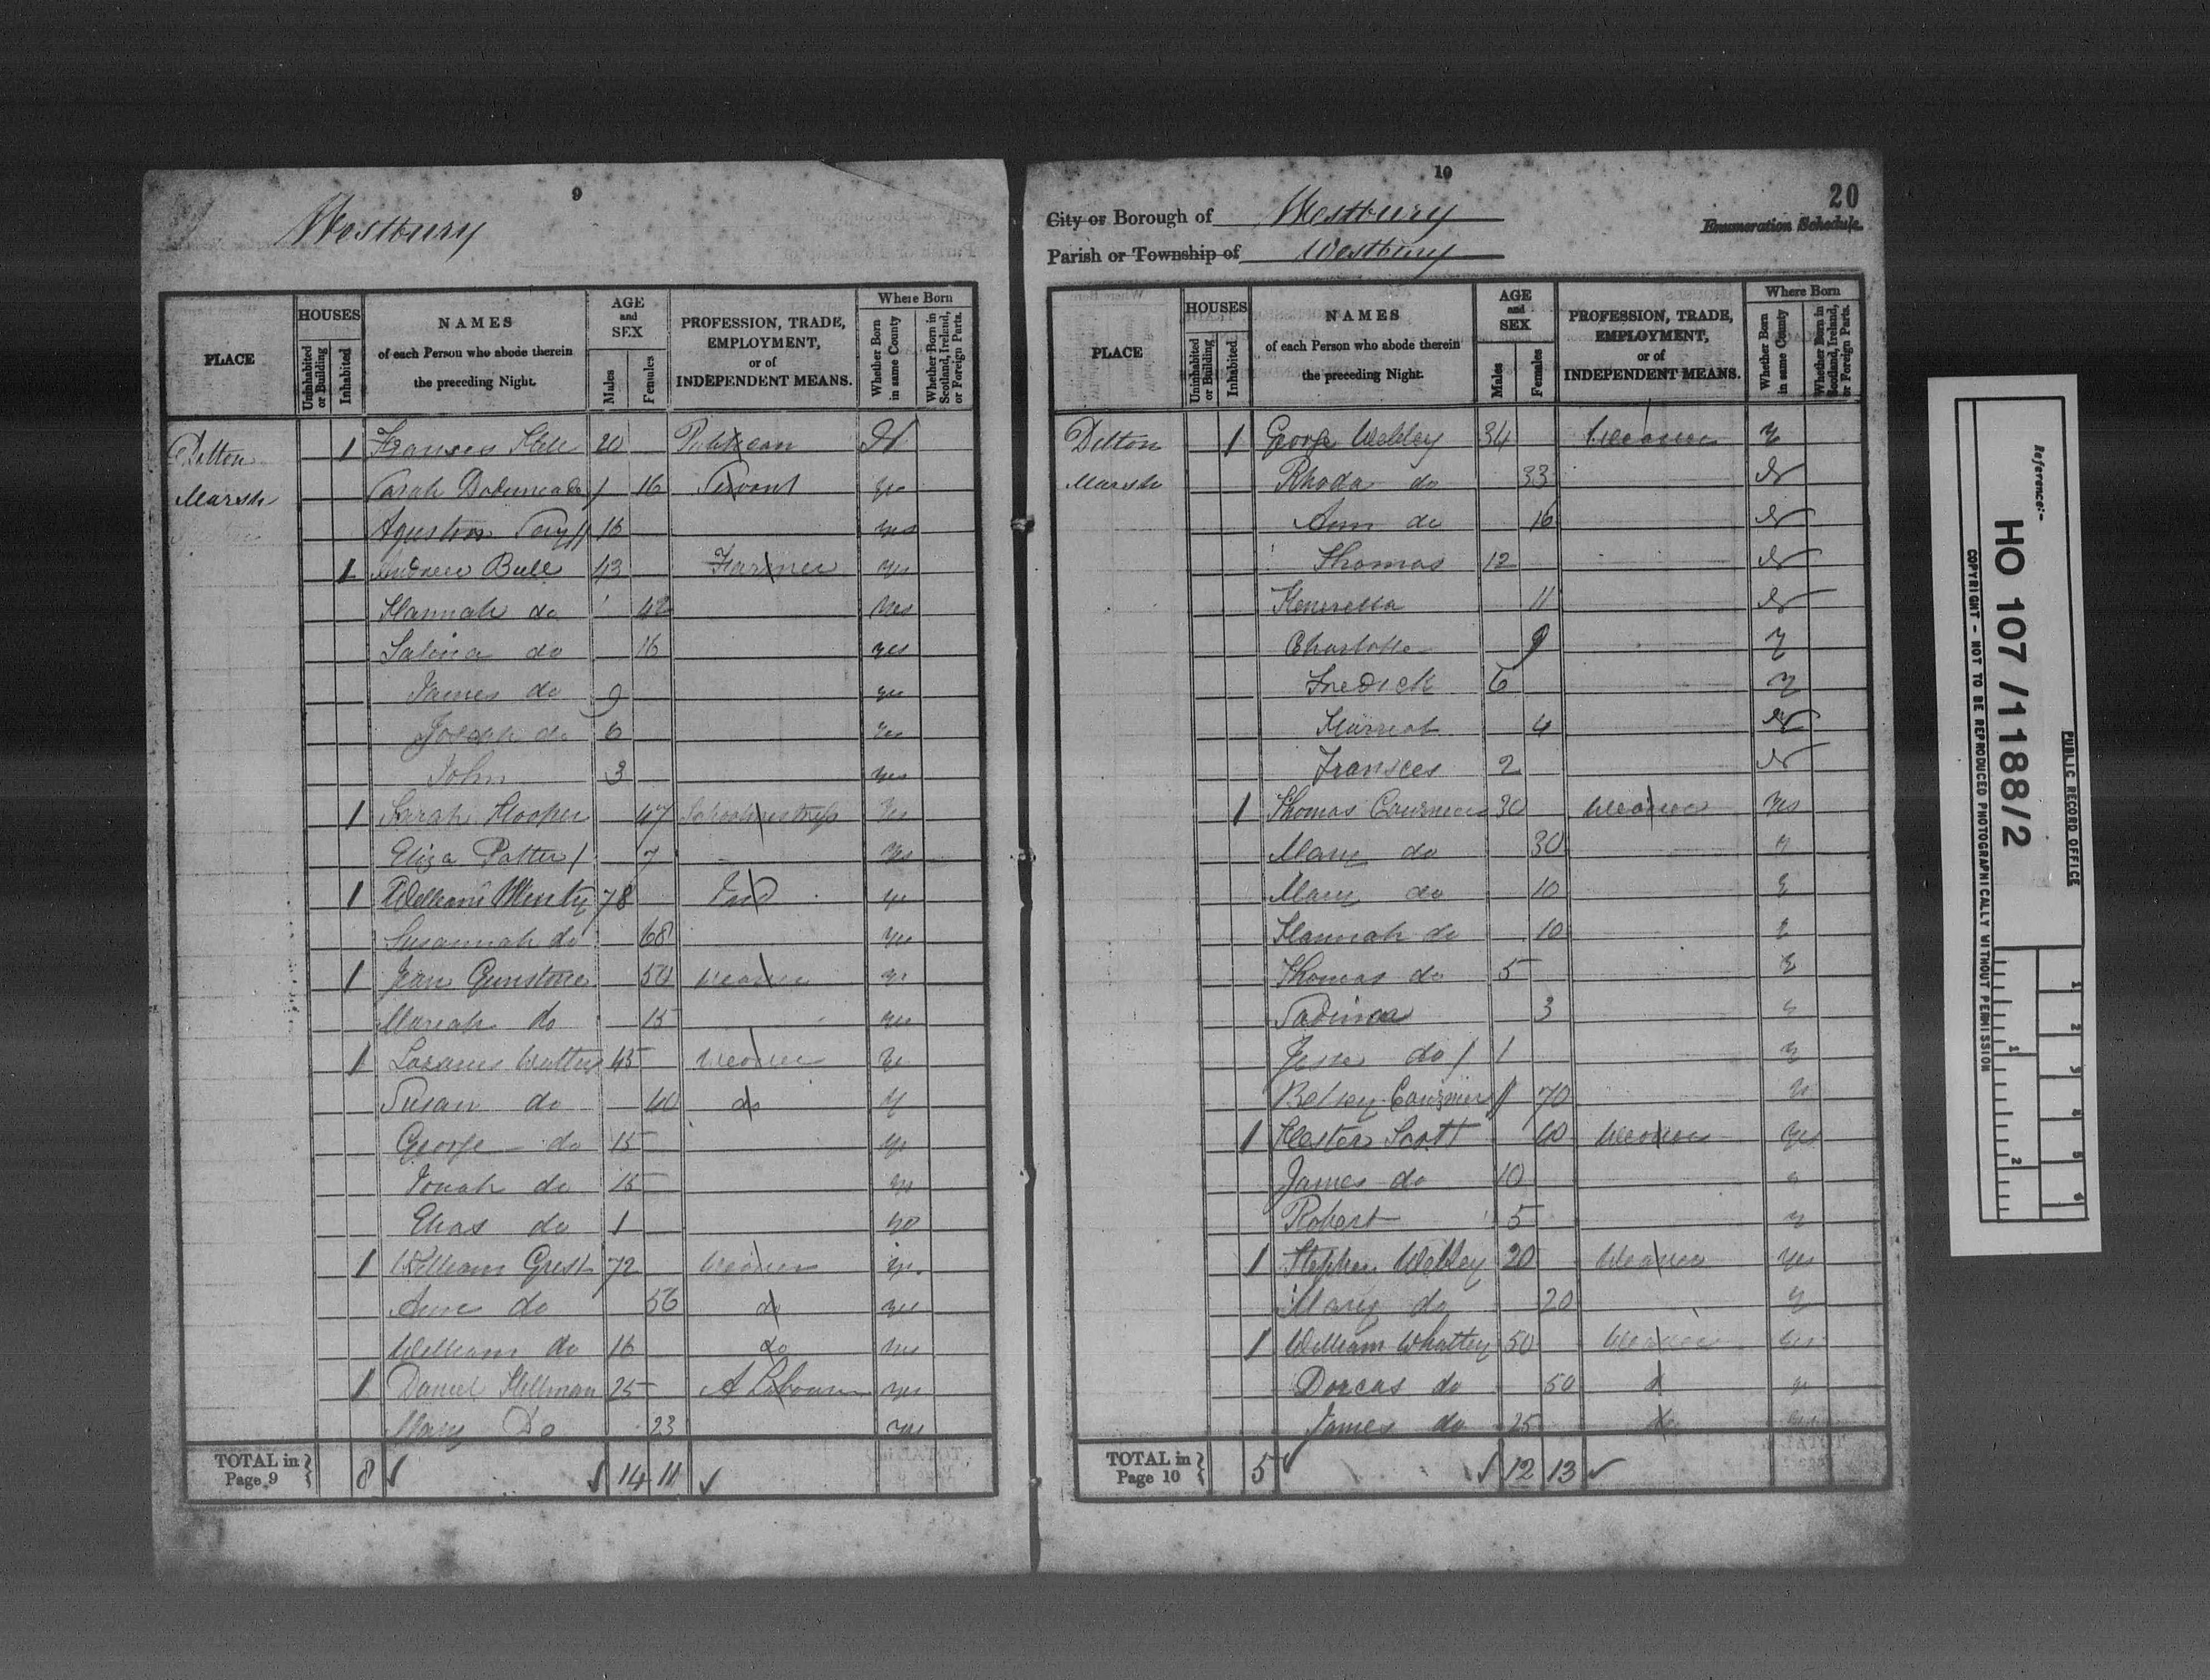 9
Westbury
PLACE
HOUSES
Uninhabited or Building
Inhabited
NAMES
of each Person who abode therein
the preceding Night.
AGE
and
SEX
Males
Females
PROFESSION, TRADE,
EMPLOYMENT,
or of
INDEPENDENT MEANS.
Where Born
Whether Born in same County
Whether Born in Scotland, Ireland, or Foreign Parts.
Dilton 1 20 N
Marsh Sarah 16 Servant ye
16 yes
1 Andrew Bull 43 Farmer yes
Hannah do 42 Yes
Salina do 16 yes
James do 9 yes
Joseph do 6 Yes
John 3 yes
1 Sarah Hooper 47 Schoolmistress Yes
Eliza Potter / 7 Yes
1 William 78 Ind ye
Susannah do 68 yes
1 Jean Gunstone 50 weaver ye
Mariah do 15 yes
1 45 weaver ye
Susan do 40 do y
George do 15 ye
Jonah do 15 yes
Elias do 1
1 William 72 weaver
Ann do 56 do yes
William do 16 do yes
1 Daniel Hillman 25 A Labourer yes
Mary Do 23 yes
TOTAL in
Page 9 8 14 11
10
20
City or Borough of Westbury
Enumeration Schedule.
Parish or Township of Westbury
PLACE
HOUSES
Uninhabited or Building
Inhabited
NAMES
of each Person who abode therein
the preceding Night.
AGE
and
SEX
Males
Females
PROFESSION, TRADE,
EMPLOYMENT,
or of
INDEPENDENT MEANS.
Where Born
Whether Born in same County
Whether Born in Scotland, Ireland, or Foreign Parts.
Dilton 1 George Webley 34 weaver y
Marsh Rhoda do 33 N
Ann do 16 N
Thomas 12 N
11 N
Charlotte 9 y
Fredick 6 y
4 N
Fransces 2 N
1 Thomas 30 weaver Yes
Mary do 30 y
Mary do 10 y
Hannah do 10 y
Thomas do 5 y
3 y
Jesse do / 1 y
Betsey 70 y
1 Hester Scott 40 weaver Yes
James do 10
Robert 5 y
1 Stephen Webley 20 Weaver Yes
Mary do 20 y
1 William Whatley 50 Weaver
Dorcas do 50 y
James do 25 do
TOTAL in
Page 10 5 12 13
Reference:-
HO 107/1188/2
PUBLIC RECORD OFFICE
COPYRIGHT - NOT TO BE REPRODUCED PHOTOGRAPHICALLY WITHOUT PERMISSION
1 2 3 4 5 6
1 2